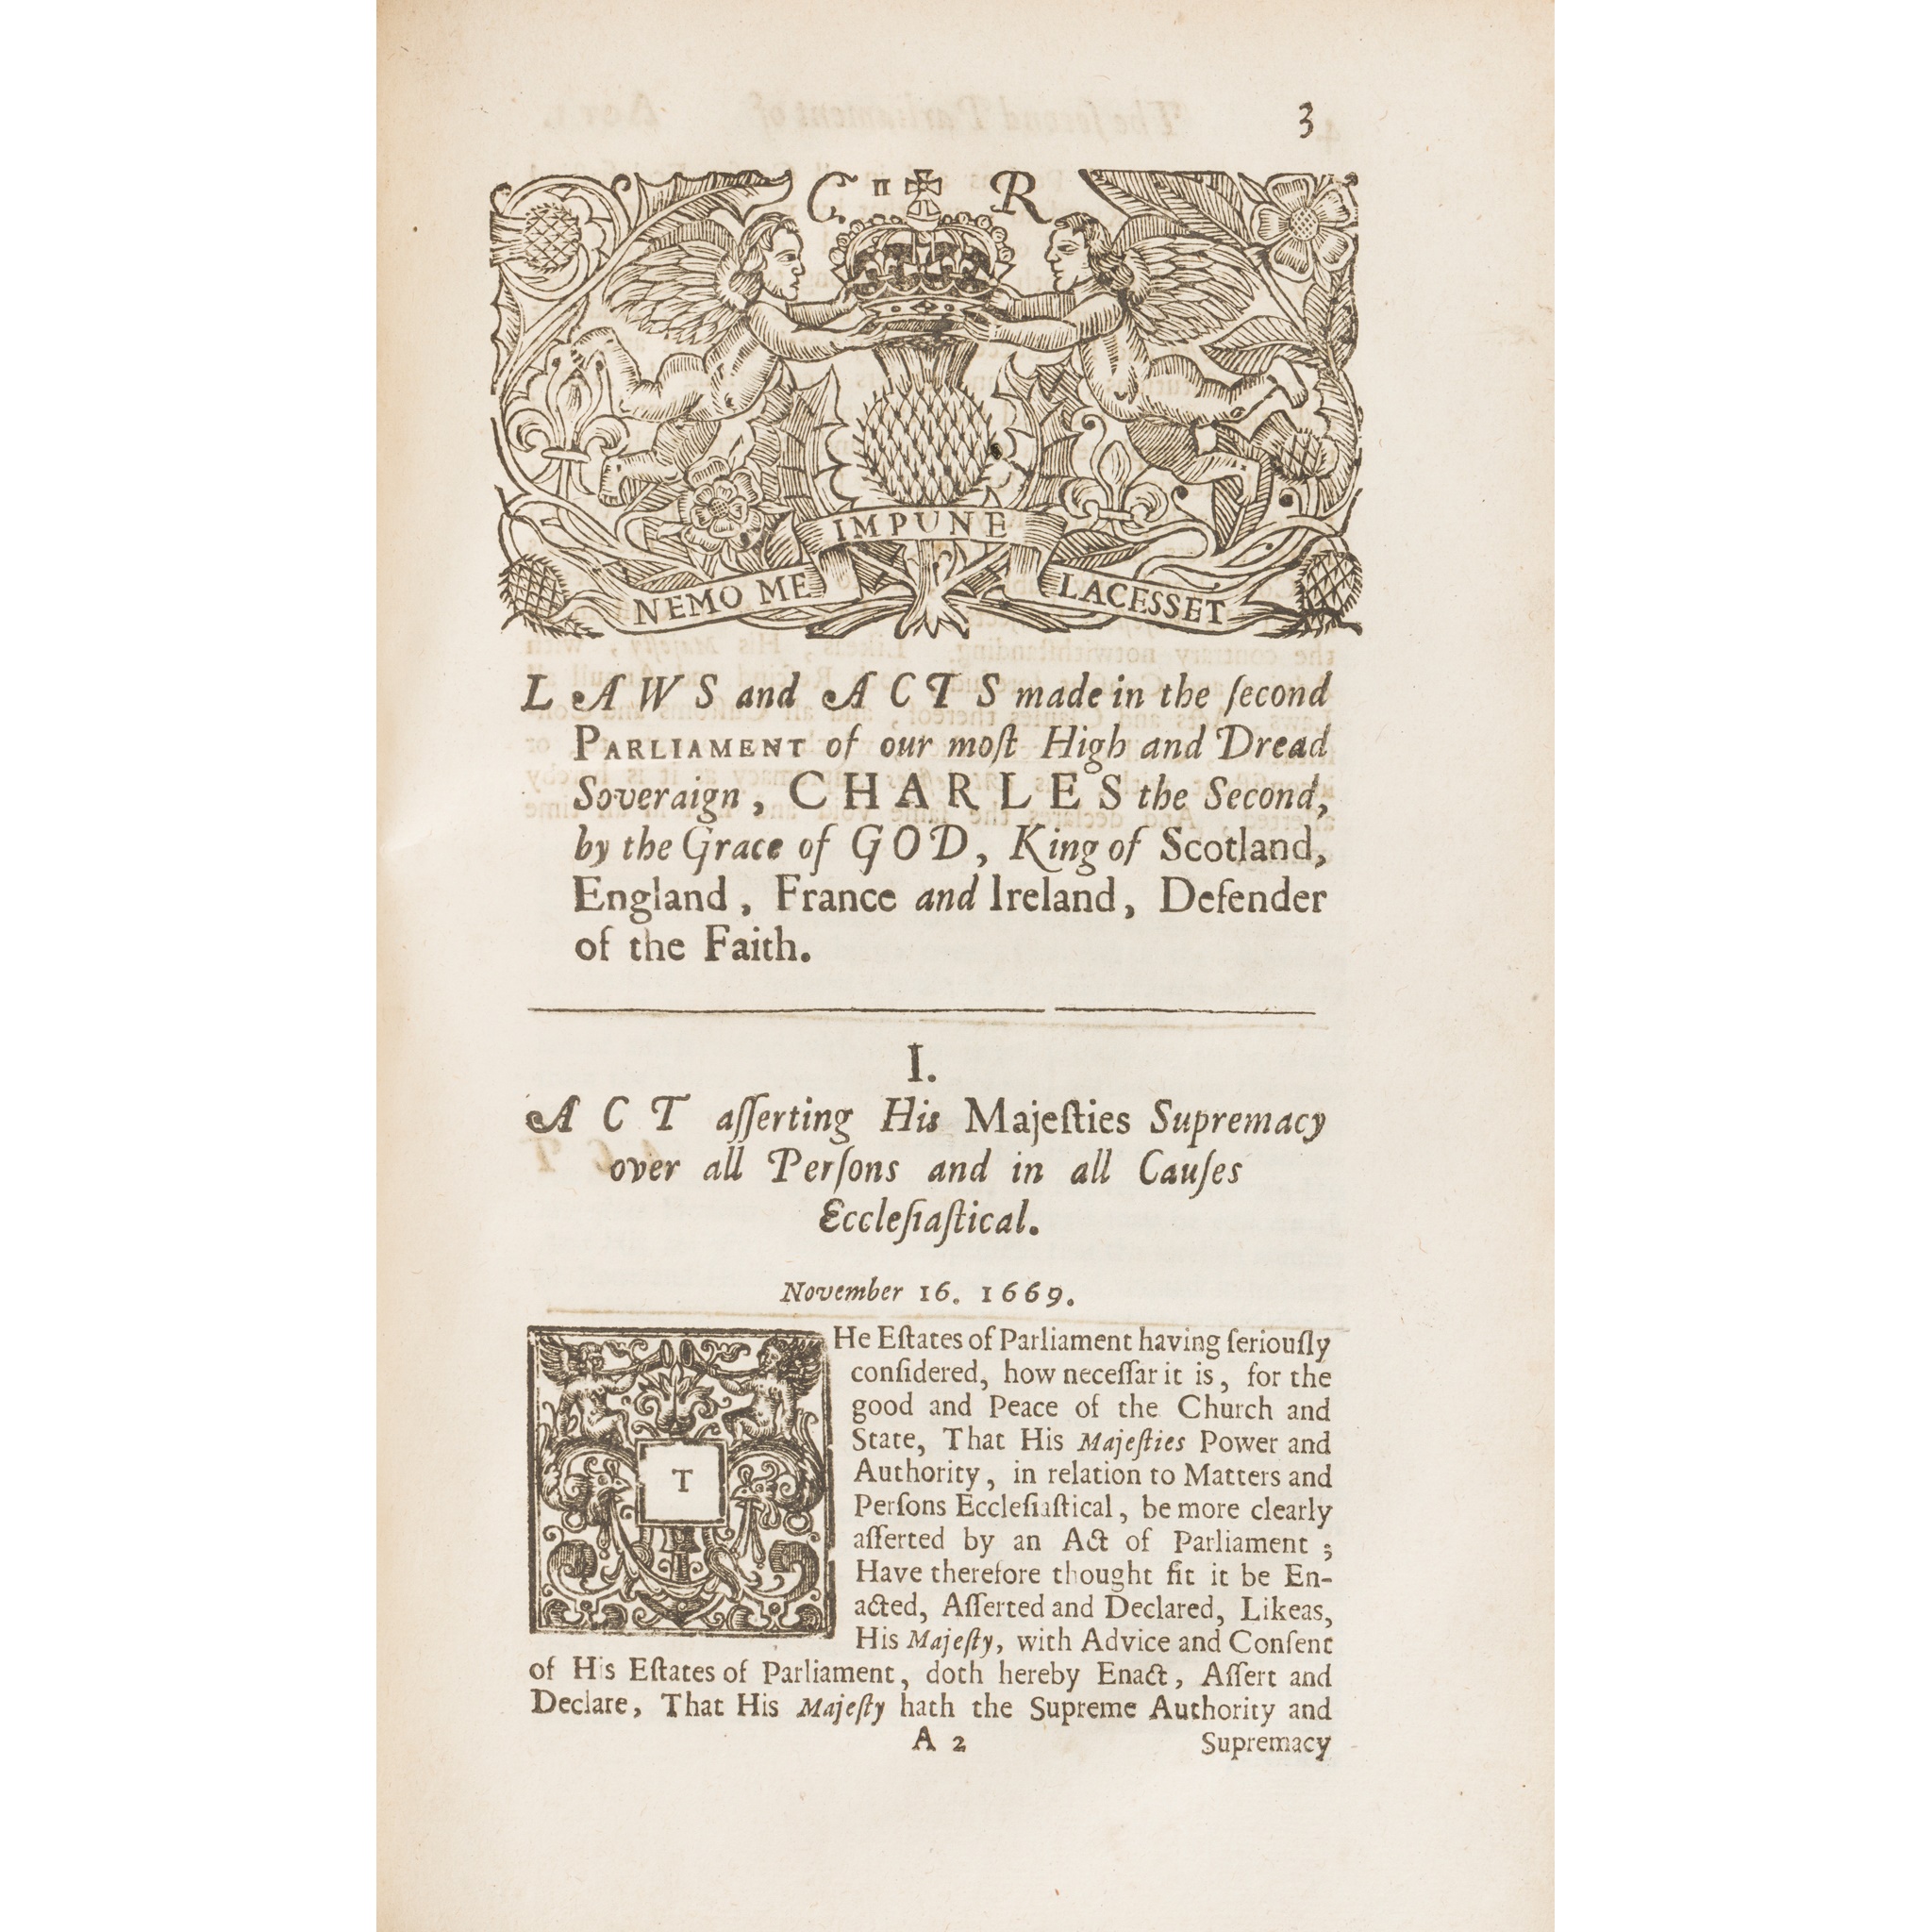 3
C II R
IMPUNE
NEMO ME LACESSET
LAWS and ACTS made in the ſecond
PARLIAMENT of our moſt High and Dread
Soveraign, CHARLES the Second,
by the Grace of GOD, King of Scotland,
England, France and Ireland, Defender
of the Faith.
I.
ACT aſſerting His Majeſties Supremacy
over all Perſons and in all Cauſes
Eccleſiaſtical.
November 16. 1669.
THe Eſtates of Parliament having ſeriouſly
conſidered, how neceſſar it is, for the
good and Peace of the Church and
State, That His Majeſties Power and
Authority, in relation to Matters and
Perſons Eccleſiaſtical, be more clearly
aſſerted by an Act of Parliament;
Have therefore thought fit it be En-
acted, Aſſerted and Declared, Likeas,
His Majeſty, with Advice and Conſent
of His Eſtates of Parliament, doth hereby Enact, Aſſert and
Declare, That His Majeſty hath the Supreme Authority and
A 2 Supremacy